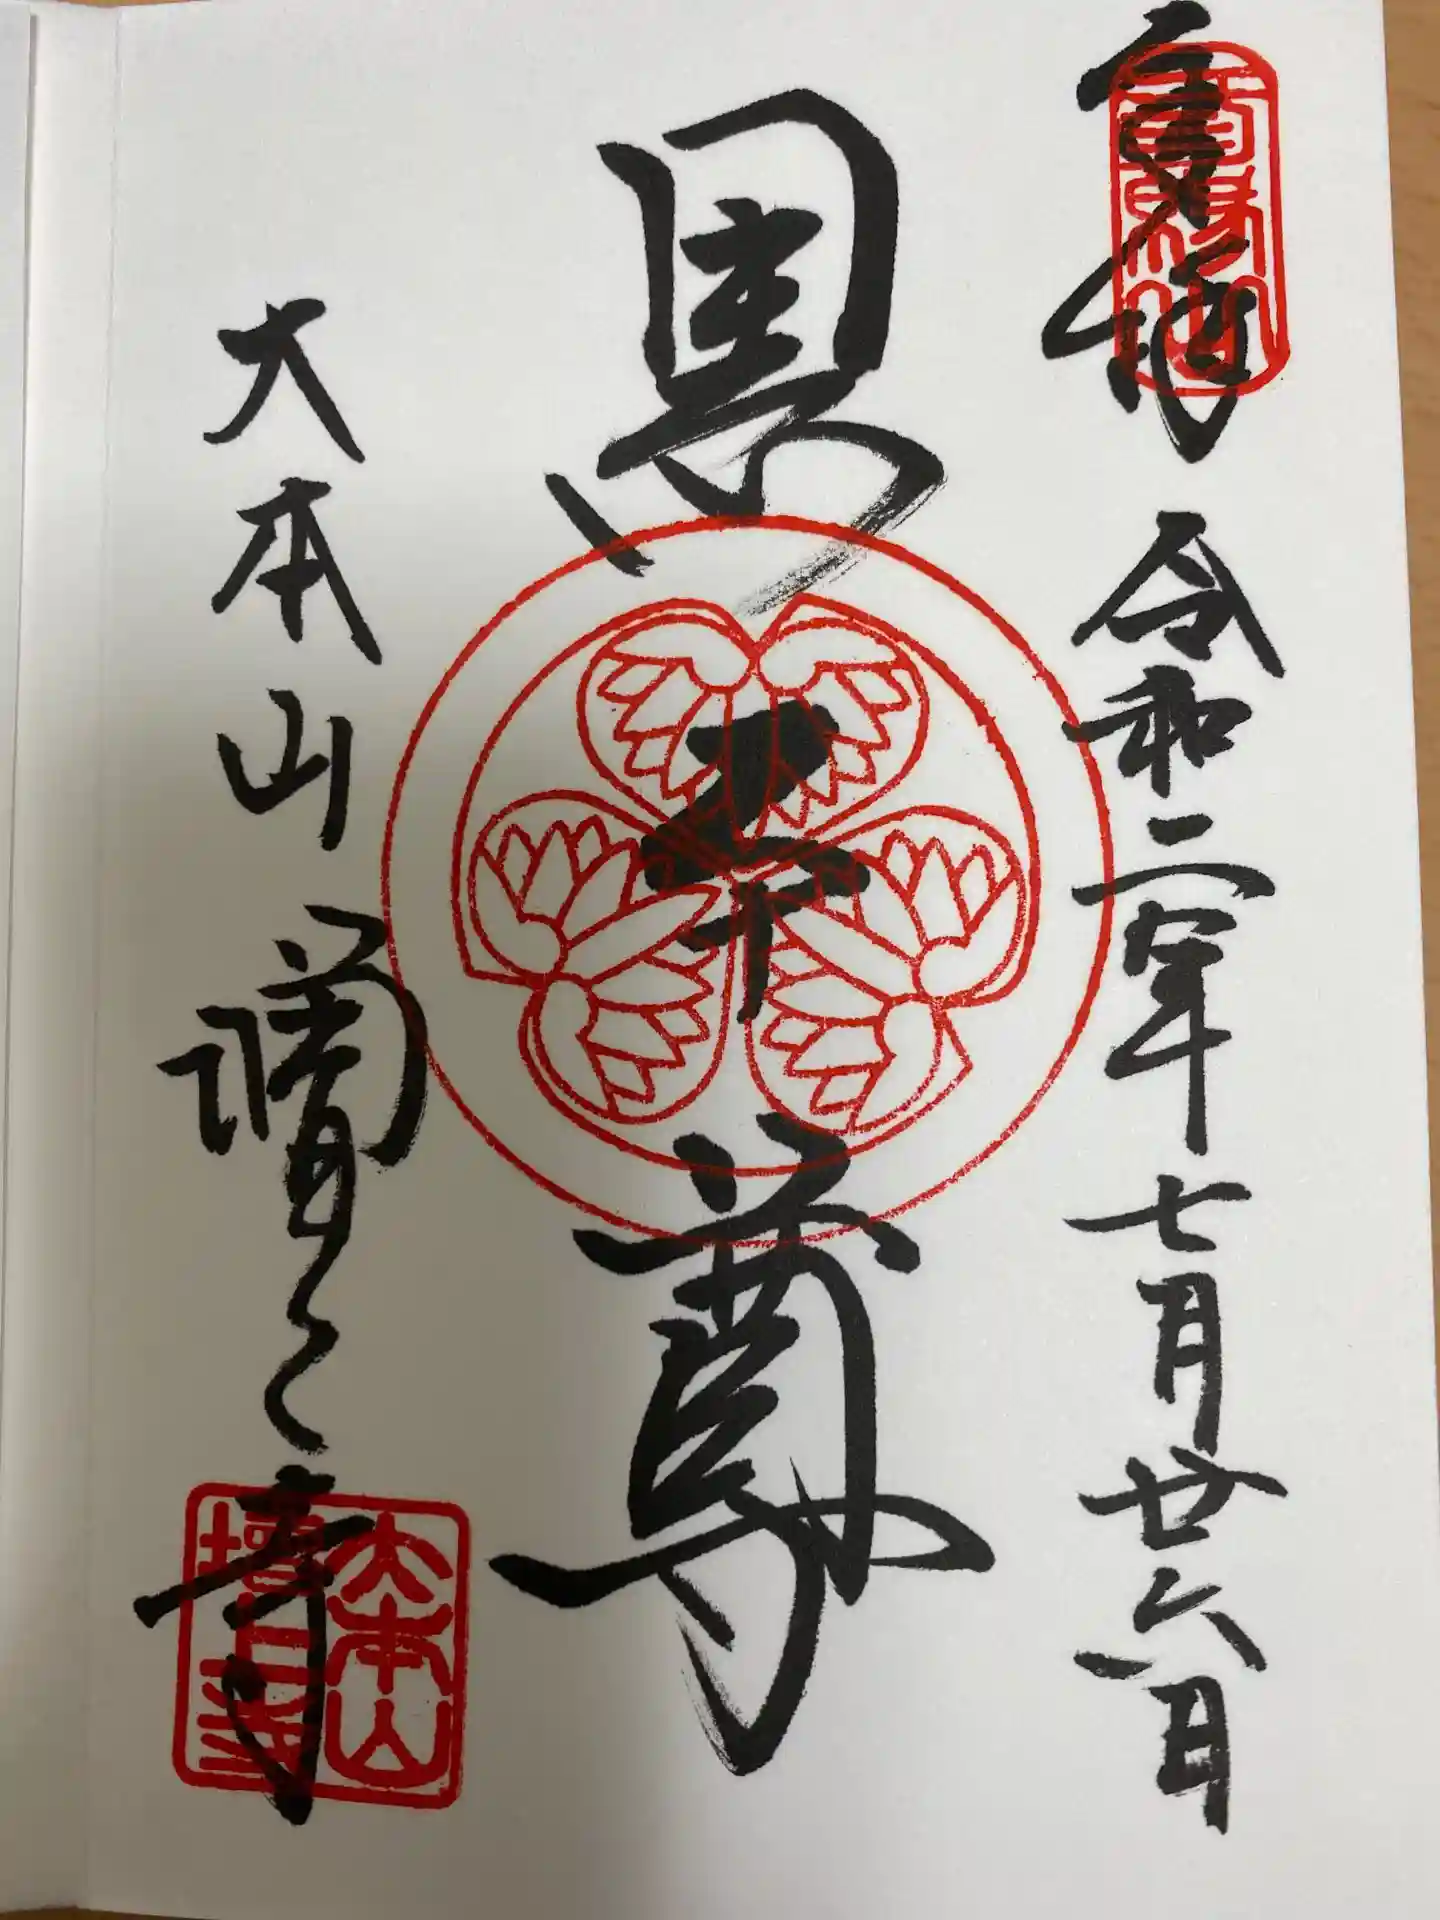 奉拝 令和二年七月廿六日
黒本尊
大本山増上寺
大本山
増上寺